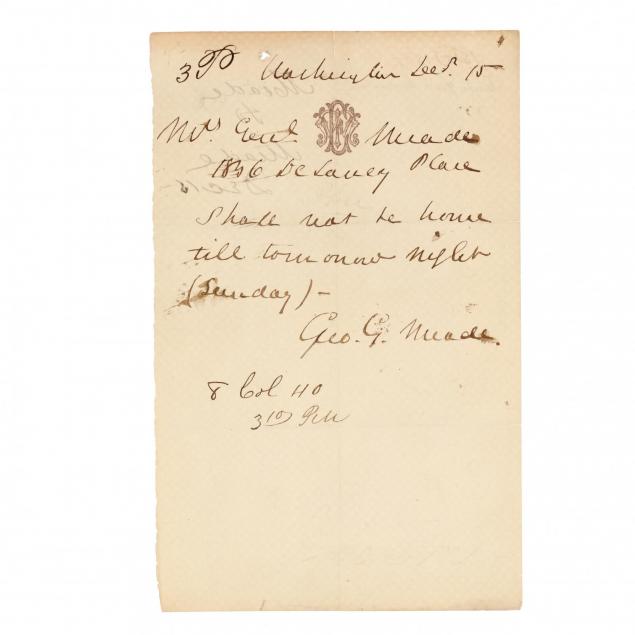 3 P Washington Dec. 15
Mrs Genl. Meade
1836 DeLancy Place
Shall not be home
till tomorrow night
(Sunday) -
Geo. G. Meade.
8 Col 40
310